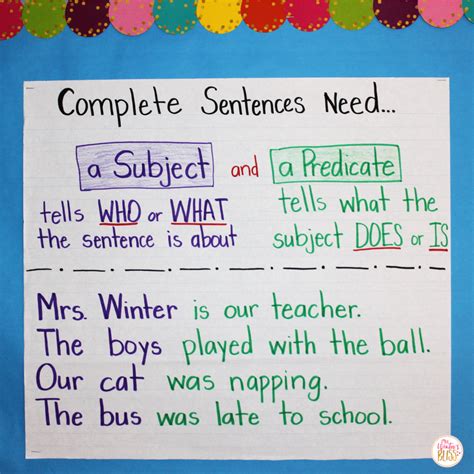 Complete Sentences Need...
a Subject and a Predicate
tells WHO or WHAT
the sentence is about
tells what the
subject DOES or IS
Mrs. Winter is our teacher.
The boys played with the ball.
Our cat was napping.
The bus was late to school.
Mrs. Winter's
BLISS